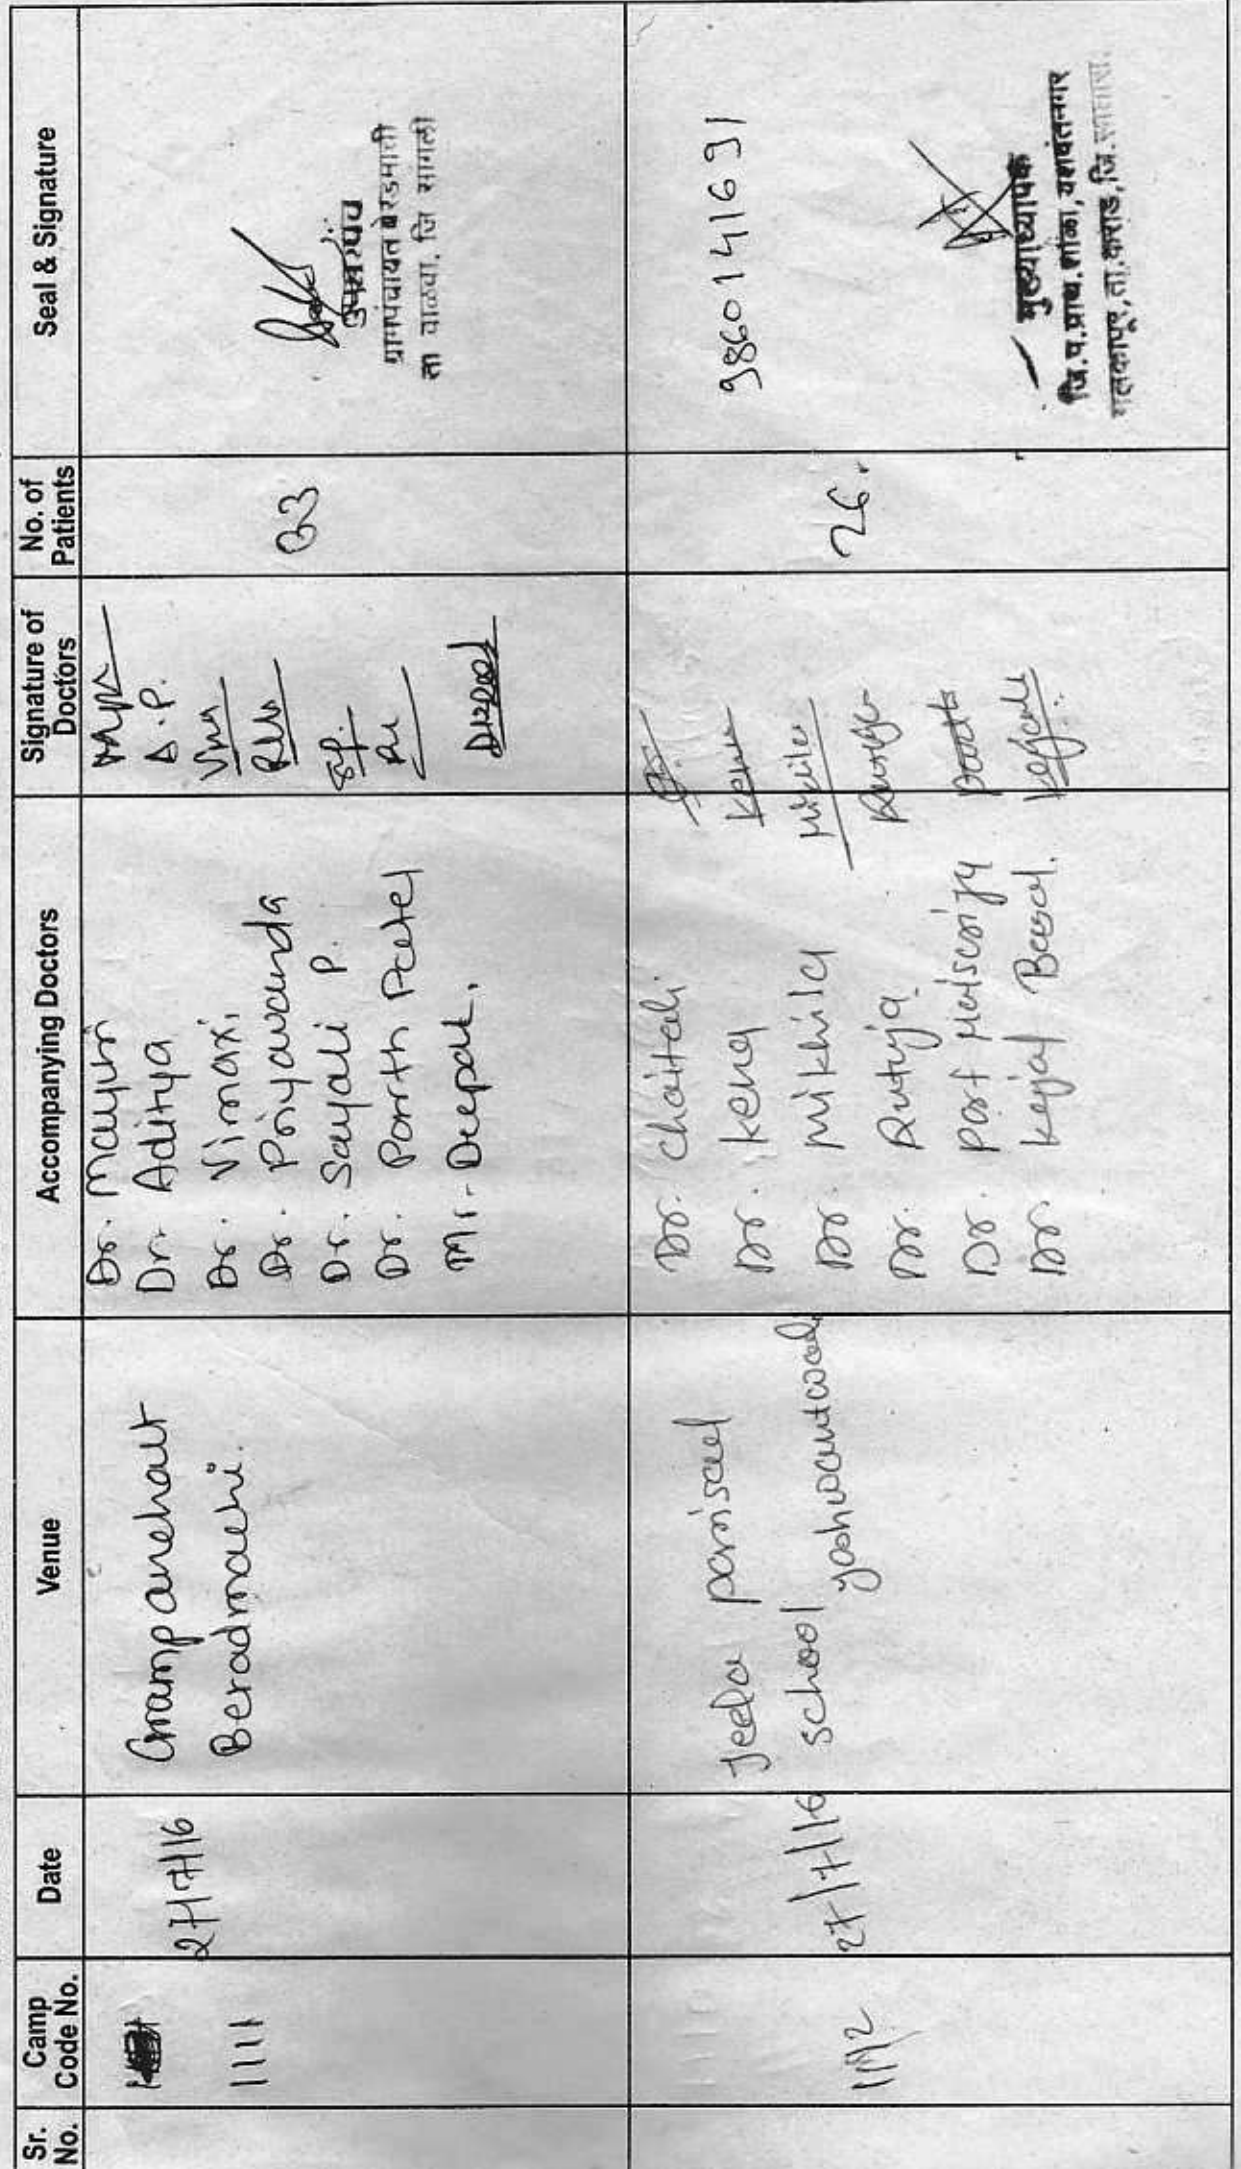 Sr. No.
Camp Code No.
Date
Venue
Accompanying Doctors
Signature of Doctors
No. of Patients
Seal & Signature
1111
27/7/16
Grampanchait
Beradmachi.
Dr. Mayuri
Dr. Aditya
Dr. Vimaxi
Dr. Priyavanda
Dr. Sayali P.
Dr. Parth Patel
Mr. Deepak.
A.P.
33
उपसरपंच
ग्रामपंचायत बेरडमाची
ता वाळवा, जि सांगली
1112
27/7/16
Jeela parisad
school yashwantwadi
Dr. Chaitali
Dr. Kena
Dr. Nikhila
Dr. Rutuja
Dr. Kejal
26.
9860141691
मुख्याध्यापक
जि.प.प्राथ.शाळा,यशवंतनगर
मलकापूर,ता.कराड,जि.सातारा.